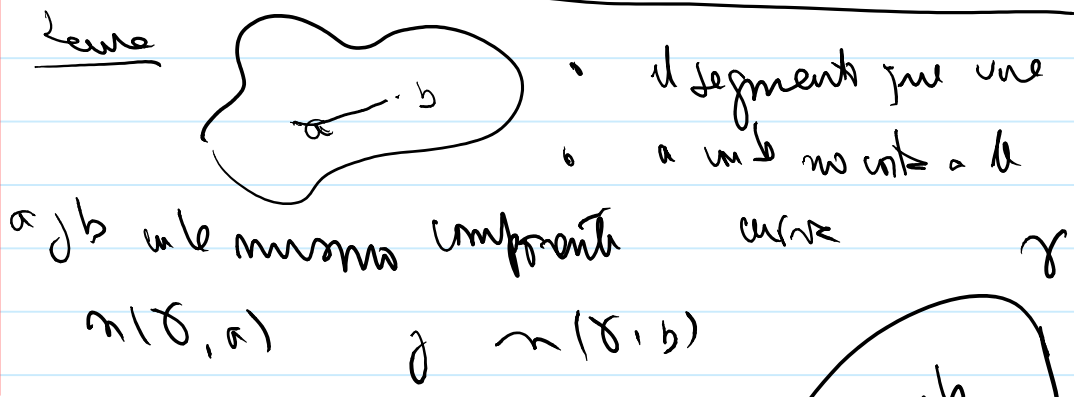 Lema
a b
el segmento que une
a con b no corta a la
curva γ
a y b en la misma componente
n(γ, a) y n(γ, b)